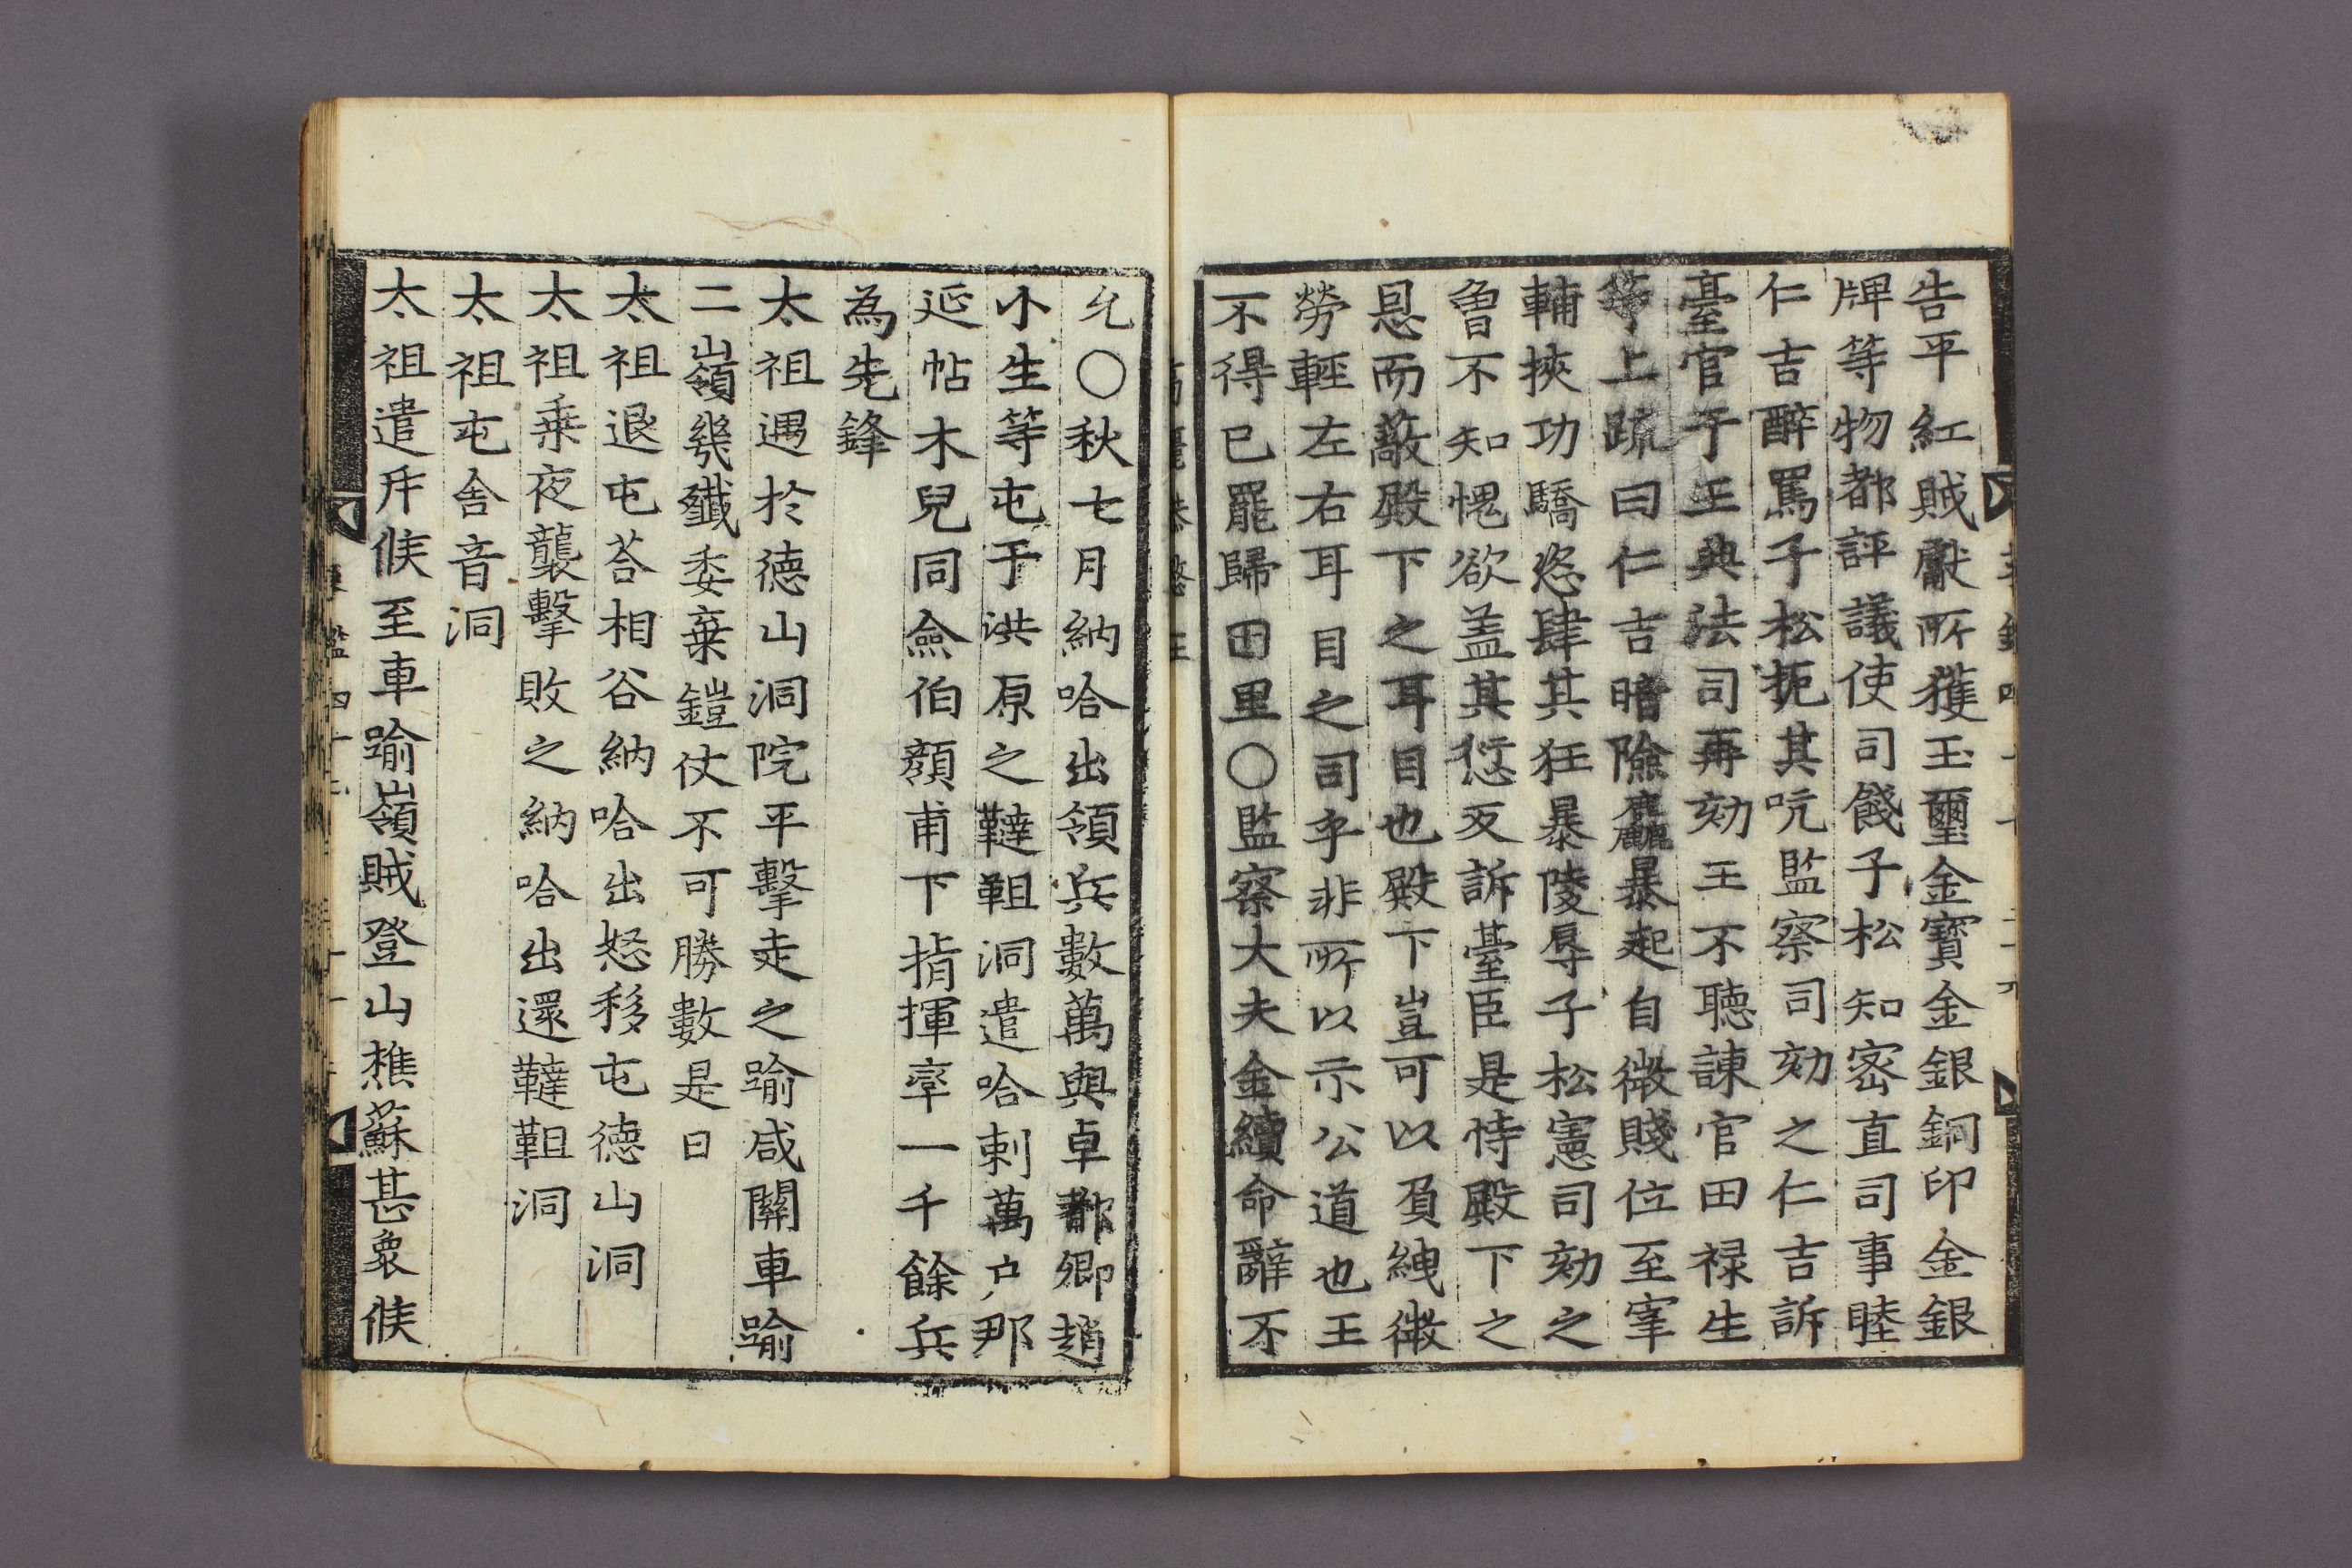 告平紅賊獻所獲玉璽金寶金銀銅印金銀
牌等物都評議使司餞子松知密直司事睦
仁吉醉罵子松扼其吭監察司劾之仁吉訴
臺官于王典法司再劾王不聽諫官田祿生
等上疏曰仁吉暗險麤暴起自微賤位至宰
輔挾功驕恣肆其狂暴陵辱子松憲司劾之
曾不知愧欲盖其愆反訴臺臣是恃殿下之
恩而蔽殿下之耳目也殿下豈可以負絏微
勞輕左右耳目之司乎非所以示公道也王
不得已罷歸田里○監察大夫金續命辭不
允○秋七月納哈出領兵數萬與卓都卿趙
小生等屯于洪原之韃靼洞遣哈剌萬户那
延帖木兒同僉伯顔甫下指揮率一千餘兵
為先鋒
太祖遇於德山洞院平擊走之踰咸關車踰
二嶺幾殲委棄鎧仗不可勝數是日
太祖退屯荅相谷納哈出怒移屯德山洞
太祖乗夜襲擊敗之納哈出還韃靼洞
太祖屯舍音洞
太祖遣斥候至車踰嶺賊登山樵蘇甚衆候